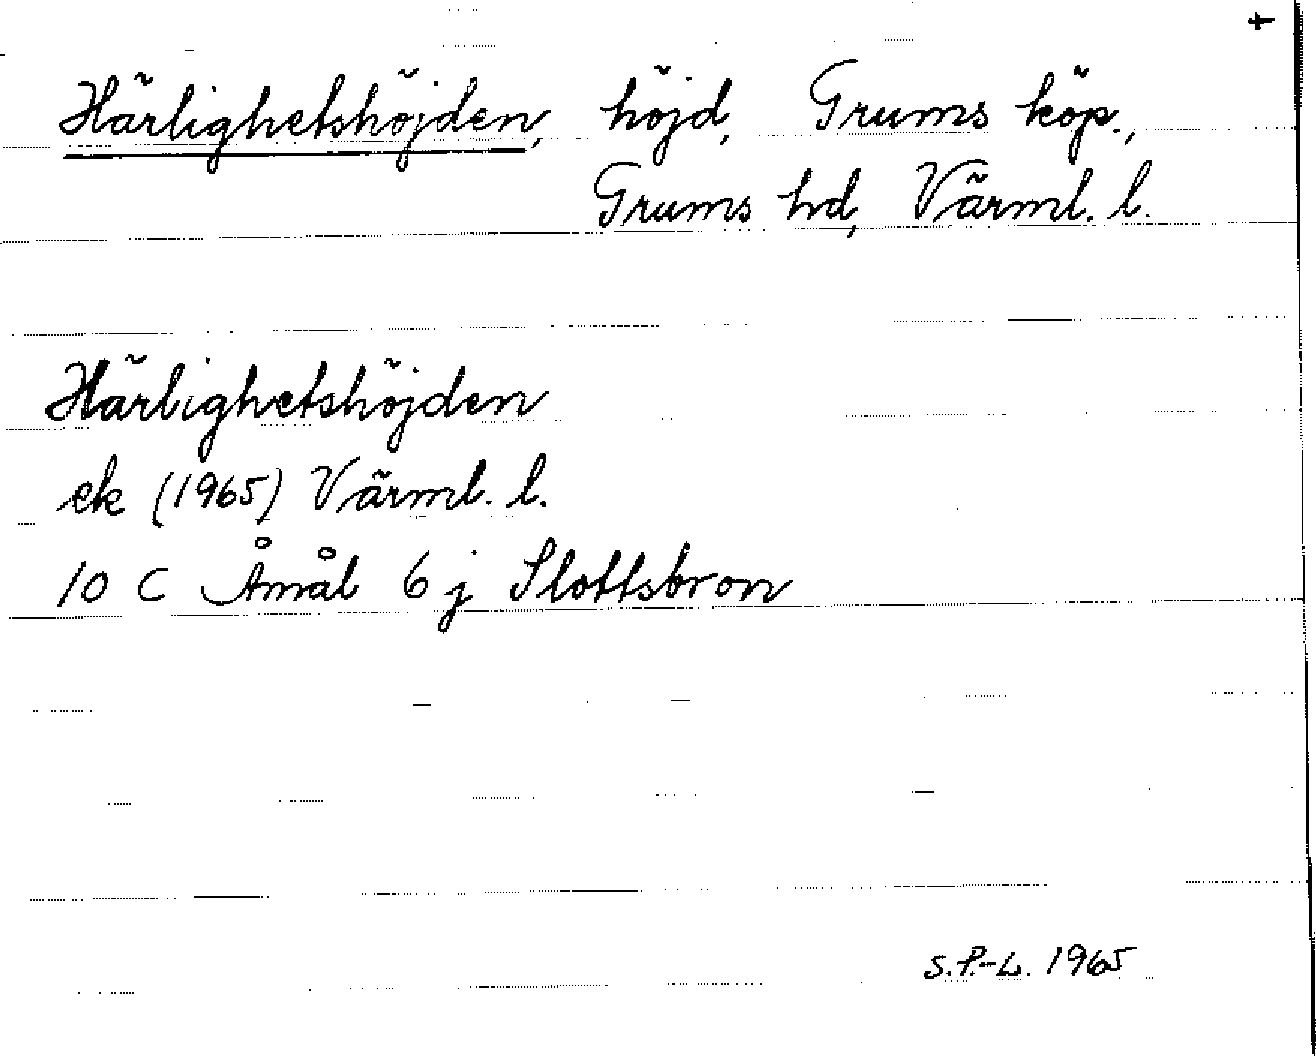 Härlighetshöjden, höjd, Grums köp.,
Grums hd, Värml. l.
Härlighetshöjden
ek (1965) Värml. l.
10 C Åmål 6 j Slottsbron
S.P.-L. 1965